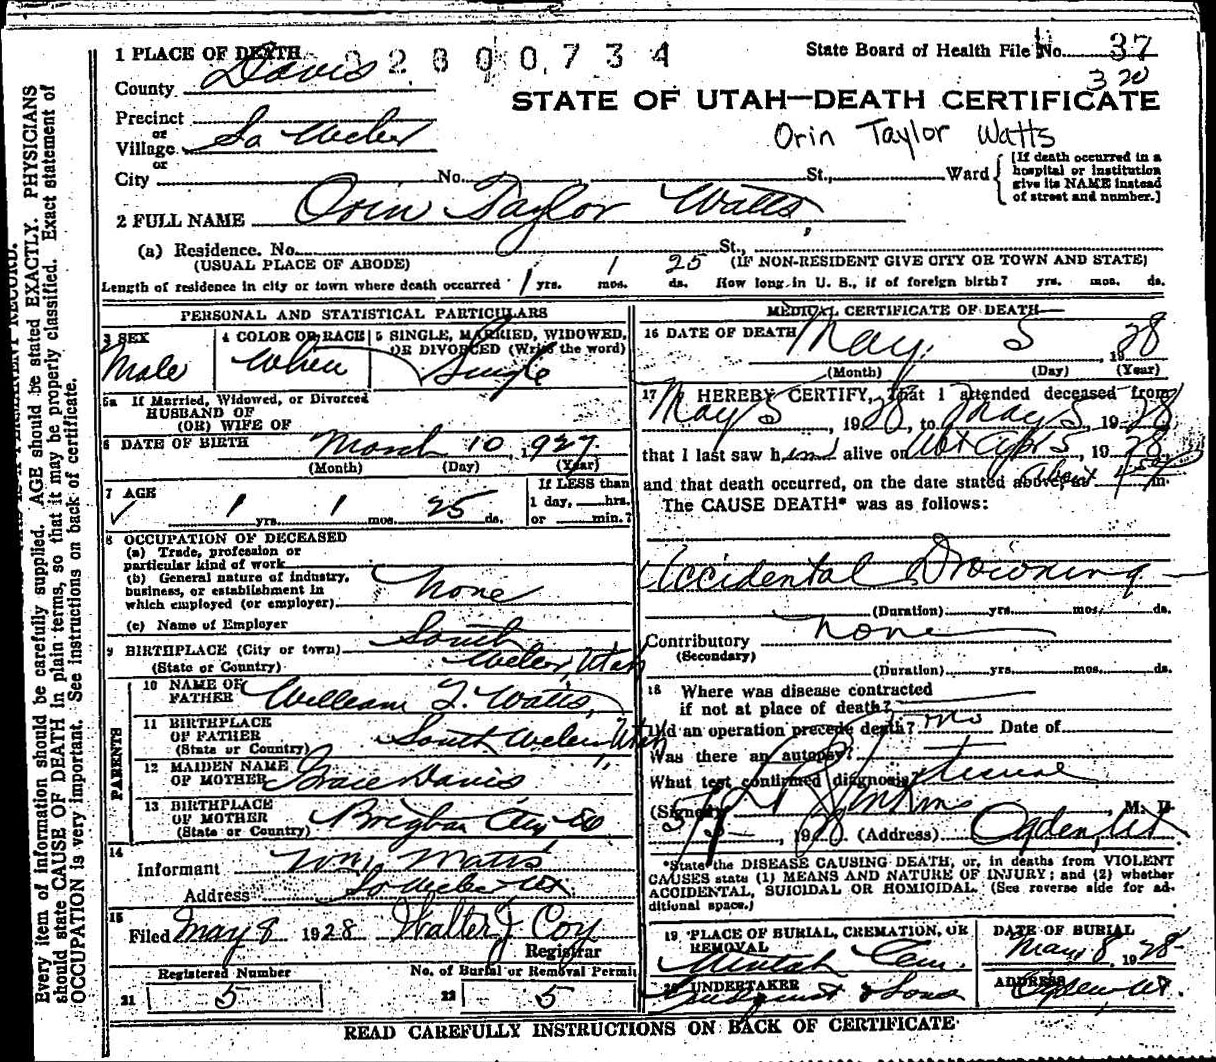 1 PLACE OF DEATH
0 2 6 0 0 7 3 4
State Board of Health File No. 37
320
County Davis
STATE OF UTAH—DEATH CERTIFICATE
Precinct
or
Village So Weber
Orin Taylor Watts
or
City No. St., Ward
[If death occurred in a
hospital or institution
give its NAME instead
of street and number.]
2 FULL NAME Orin Taylor Watts,
(a) Residence. No. St.,
(USUAL PLACE OF ABODE) (IF NON-RESIDENT GIVE CITY OR TOWN AND STATE)
Length of residence in city or town where death occurred 1 yrs. 1 mos. 25 ds. How long in U. S., if of foreign birth? yrs. mos. ds.
PERSONAL AND STATISTICAL PARTICULARS
3 SEX
Male
4 COLOR OR RACE
5 SINGLE, MARRIED, WIDOWED,
OR DIVORCED (Write the word)
Single
5a If Married, Widowed, or Divorced
HUSBAND OF
(OR) WIFE OF
6 DATE OF BIRTH March 10, 1927
(Month) (Day) (Year)
7 AGE
1 yrs. 1 mos. 25 ds.
If LESS than
1 day, hrs.
or min.?
8 OCCUPATION OF DECEASED
(a) Trade, profession or
particular kind of work
(b) General nature of industry,
business, or establishment in
which employed (or employer) None
(c) Name of Employer
9 BIRTHPLACE (City or town) South
(State or Country) Weber, Utah
PARENTS
10 NAME OF
FATHER William T. Watts,
11 BIRTHPLACE
OF FATHER
(State or Country) South Weber, Utah
12 MAIDEN NAME
OF MOTHER Grace Davis
13 BIRTHPLACE
OF MOTHER
(State or Country) Brigham City
14
Informant Wm. Watts
Address So Weber Ut
15
Filed May 8 1928 Walter J Coy
Registrar
Registered Number No. of Burial or Removal Permit
21 5 22 5
MEDICAL CERTIFICATE OF DEATH
16 DATE OF DEATH May 5, 1928
(Month) (Day) (Year)
17 I HEREBY CERTIFY, That I attended deceased from
May 5, 1928, to May 5, 1928
that I last saw him alive on 5, 1928,
and that death occurred, on the date stated above, at about 4 m.
The CAUSE DEATH* was as follows:
Accidental Drowning
(Duration) yrs. mos. ds.
Contributory none
(Secondary)
(Duration) yrs. mos. ds.
18 Where was disease contracted
if not at place of death?
Did an operation precede death? no Date of
Was there an autopsy?
What test confirmed diagnosis?
(Signed) Jenkins M. D.
1928 (Address) Ogden, Ut.
*State the DISEASE CAUSING DEATH, or, in deaths from VIOLENT
CAUSES state (1) MEANS AND NATURE OF INJURY; and (2) whether
ACCIDENTAL, SUICIDAL OR HOMICIDAL. (See reverse side for ad-
ditional space.)
19 PLACE OF BURIAL, CREMATION, OR
REMOVAL
Uintah Cem.
DATE OF BURIAL
May 8, 1928
20 UNDERTAKER
Lindquist & Sons
ADDRESS
Ogden Ut.
READ CAREFULLY INSTRUCTIONS ON BACK OF CERTIFICATE
PERMANENT RECORD.
Every item of information should be carefully supplied. AGE should be stated EXACTLY. PHYSICIANS
should state CAUSE OF DEATH in plain terms, so that it may be properly classified. Exact statement of
OCCUPATION is very important. See instructions on back of certificate.